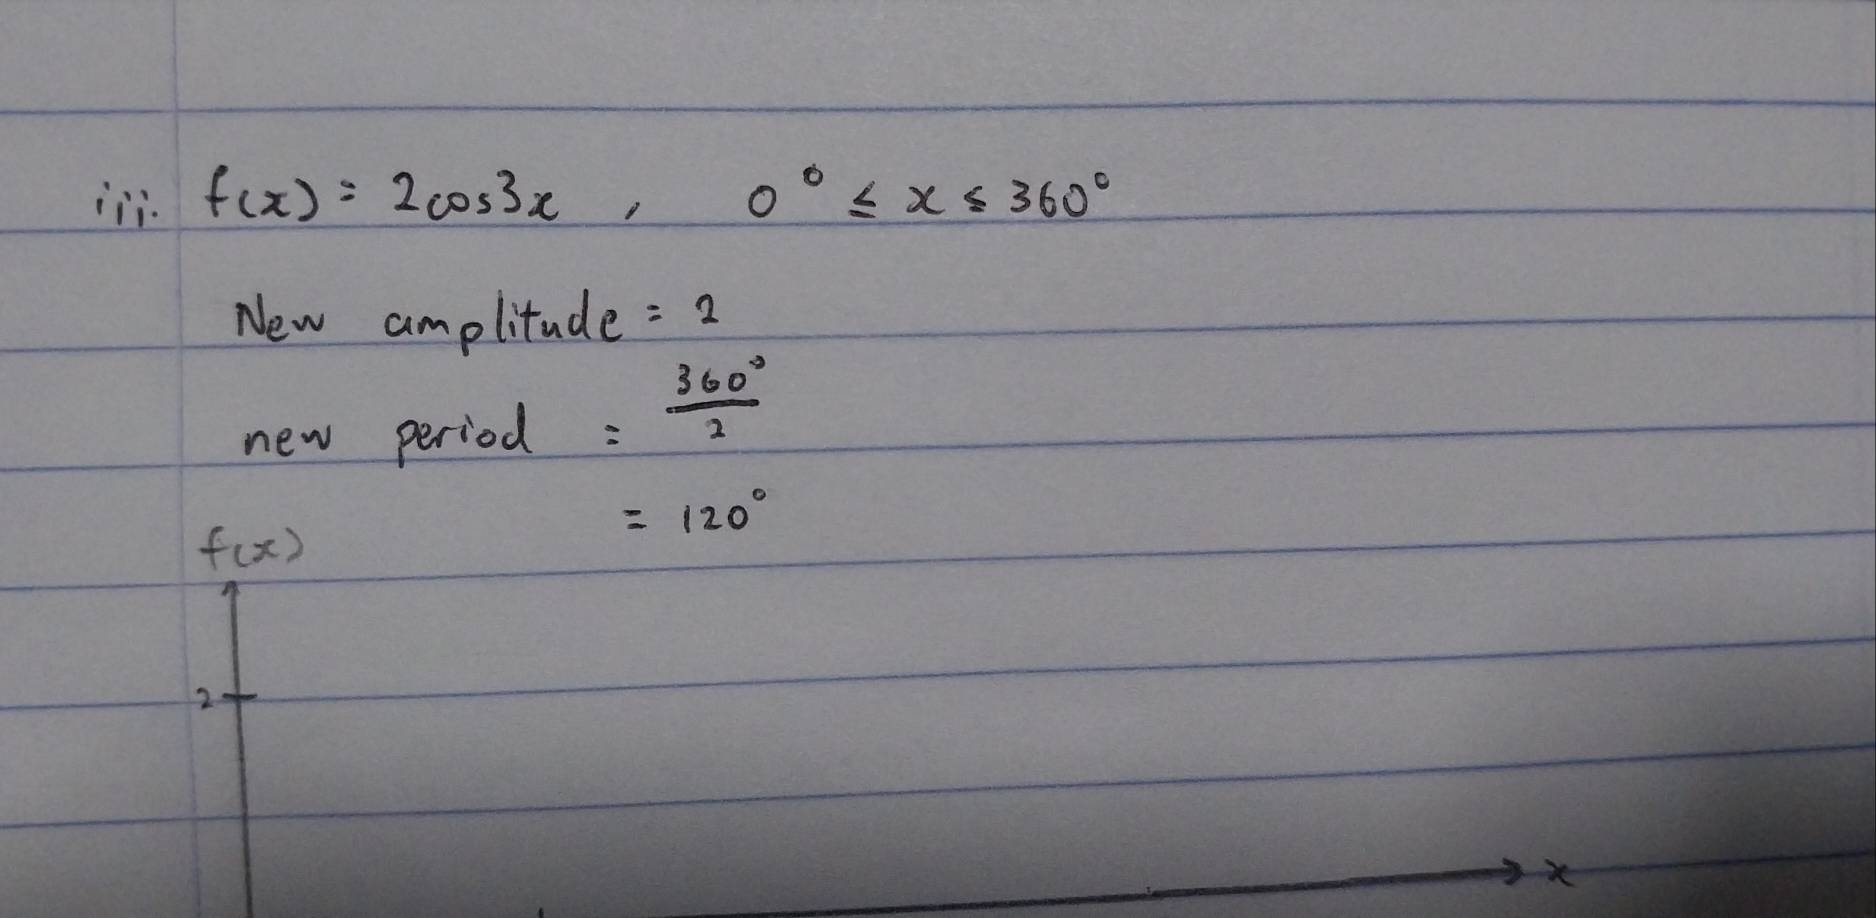 iii. f(x) = 2cos3x , 0° ≤ x ≤ 360°
New amplitude = 2
new period = 360°/2
= 120°
f(x)
2
x